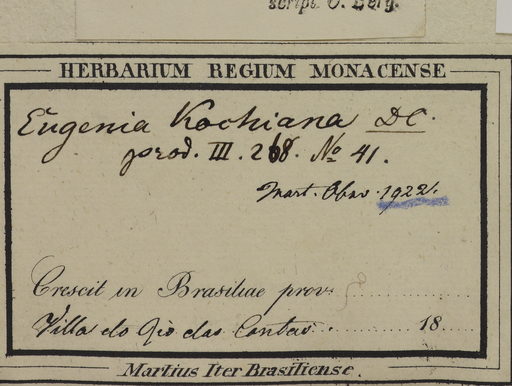 script. O. Berg.
HERBARIUM REGIUM MONACENSE
Eugenia Kochiana DC.
prod. III. 268. No 41.
Mart. Obsv. 1922.
Crescit in Brasiliae prov:
Villa do Rio das Contas. 18
Martius Iter Brasiliense.